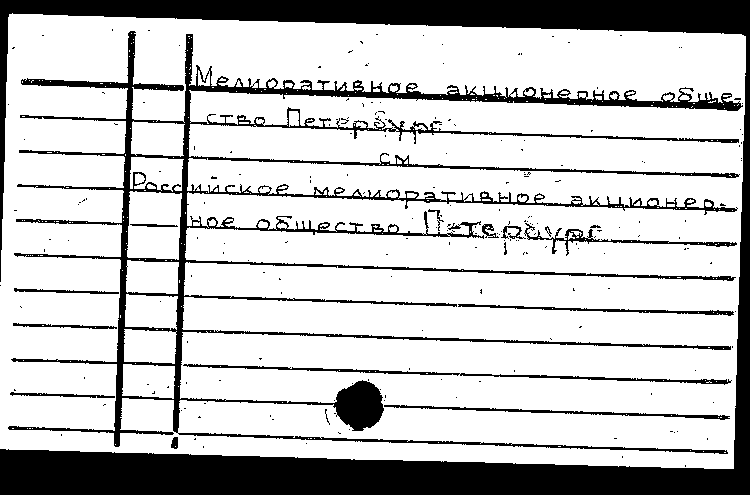 Мелиоративное акционерное обще-
ство Петербург
см
Российское мелиоративное акционер-
ное общество Петербург